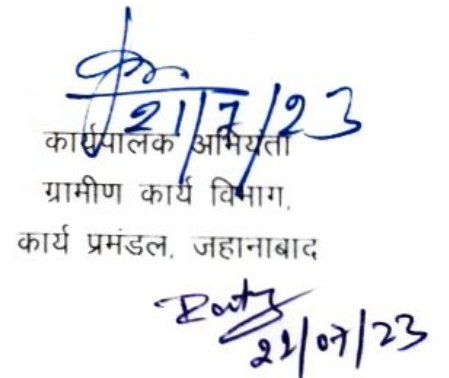 21/7/23
कार्यपालक अभियंता
ग्रामीण कार्य विभाग,
कार्य प्रमंडल, जहानाबाद
21/07/23